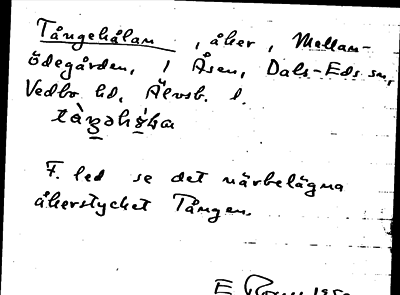 Tångehålan, åker, Mellan-
ödegården, 1 Åsen, Dals-Eds sn,
Vedbo hd, Älvsb. l.
F. led se det närbelägna
åkerstycket Tången.